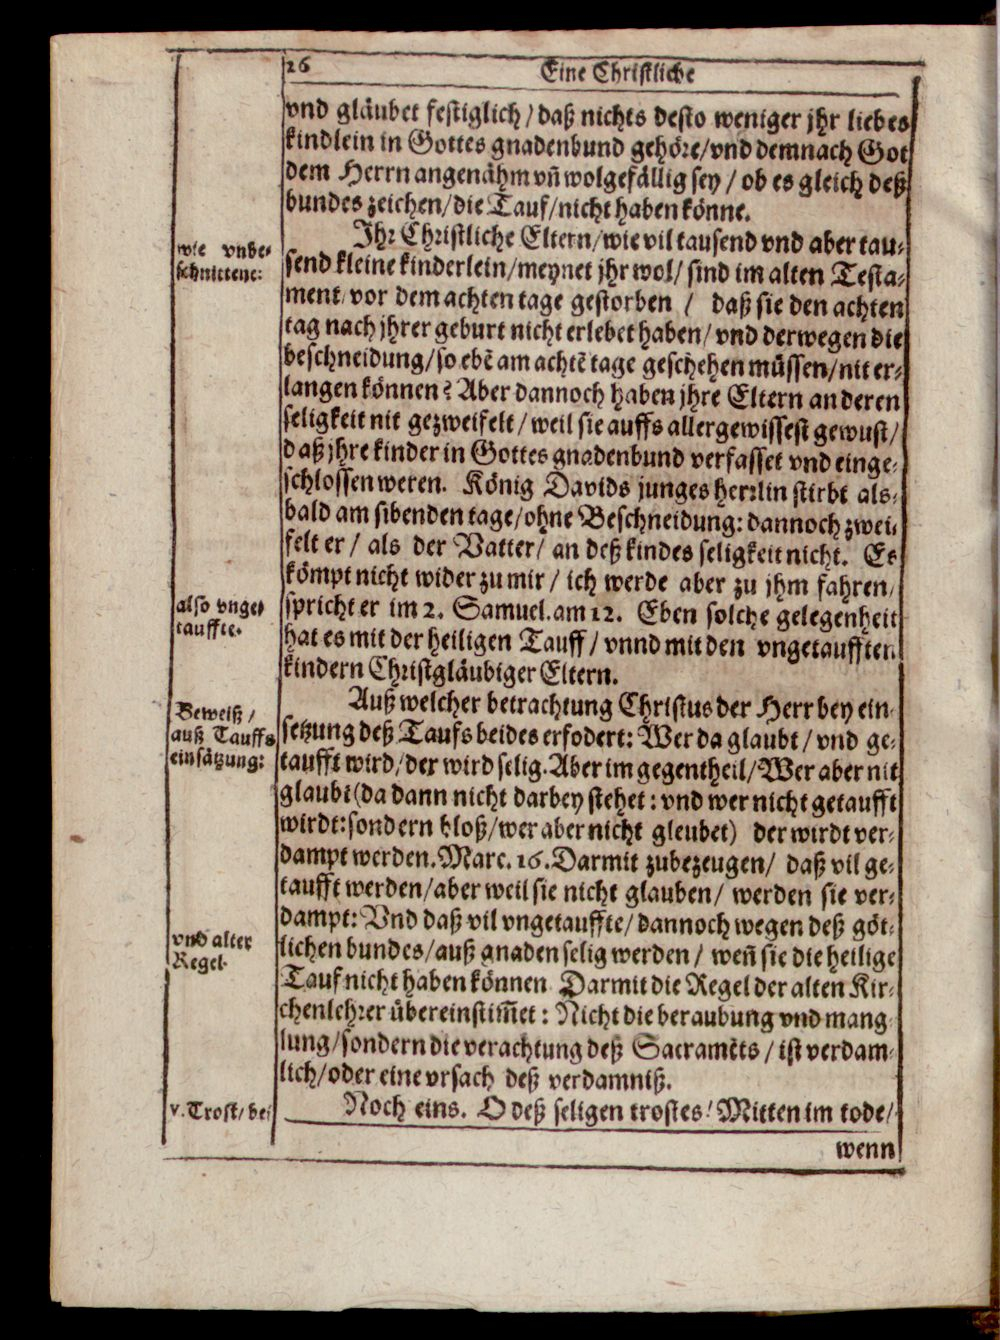 26 Eine Christliche
vnd gläubet festiglich / daß nichts desto weniger jhr liebes
kindlein in Gottes gnadenbund gehöre/vnd demnach Got
dem Herrn angenähm vn̄ wolgefällig sey / ob es gleich deß
bundes zeichen/die Tauf/nicht haben könne.
Ihr Christliche Eltern/wie vil tausend vnd aber tau-
wie vnbe-
schnittene:
send kleine kinderlein/meynet jhr wol/ sind im alten Testa-
ment/vor dem achten tage gestorben / daß sie den achten
tag nach jhrer geburt nicht erlebet haben/ vnd derwegen die
beschneidung/so ebē am achtē tage geschehen müssen/nit er-
langen können? Aber dannoch haben jhre Eltern an deren
seligkeit nit gezweifelt / weil sie auffs allergewissest gewust/
daß jhre kinder in Gottes gnadenbund verfasset vnd einge-
schlossen weren. König Davids junges herrlin stirbt als-
bald am sibenden tage/ohne Beschneidung: dannoch zwei-
felt er / als der Vatter/ an deß kindes seligkeit nicht. Es
kömpt nicht wider zu mir / ich werde aber zu jhm fahren/
also vnge-
tauffte.
spricht er im 2. Samuel. am 12. Eben solche gelegenheit
hat es mit der heiligen Tauff / vnnd mit den vngetaufften
kindern Christgläubiger Eltern.
Beweiß /
auß Tauffs
einsätzung:
Auß welcher betrachtung Christus der Herr bey ein-
setzung deß Taufs beides erfodert: Wer da glaubt / vnd ge-
taufft wird/der wird selig. Aber im gegentheil/Wer aber nit
glaubt (da dann nicht darbey stehet: vnd wer nicht getaufft
wirdt: sondern bloß/wer aber nicht gleubet) der wirdt ver-
dampt werden. Marc. 16. Darmit zubezeugen/ daß vil ge-
taufft werden/aber weil sie nicht glauben/ werden sie ver-
dampt: Vnd daß vil vngetauffte/ dannoch wegen deß göt-
vnd alter
Regel.
lichen bundes/auß gnaden selig werden / wen̄ sie die heilige
Tauf nicht haben können Darmit die Regel der alten Kir-
chenlehrer übereinstim̄et: Nicht die beraubung vnd mang-
lung/sondern die verachtung deß Sacramēts / ist verdam-
lich/oder eine vrsach deß verdamniß.
v. Trost/ bei
Noch eins. O deß seligen trostes! Mitten im tode/
wenn